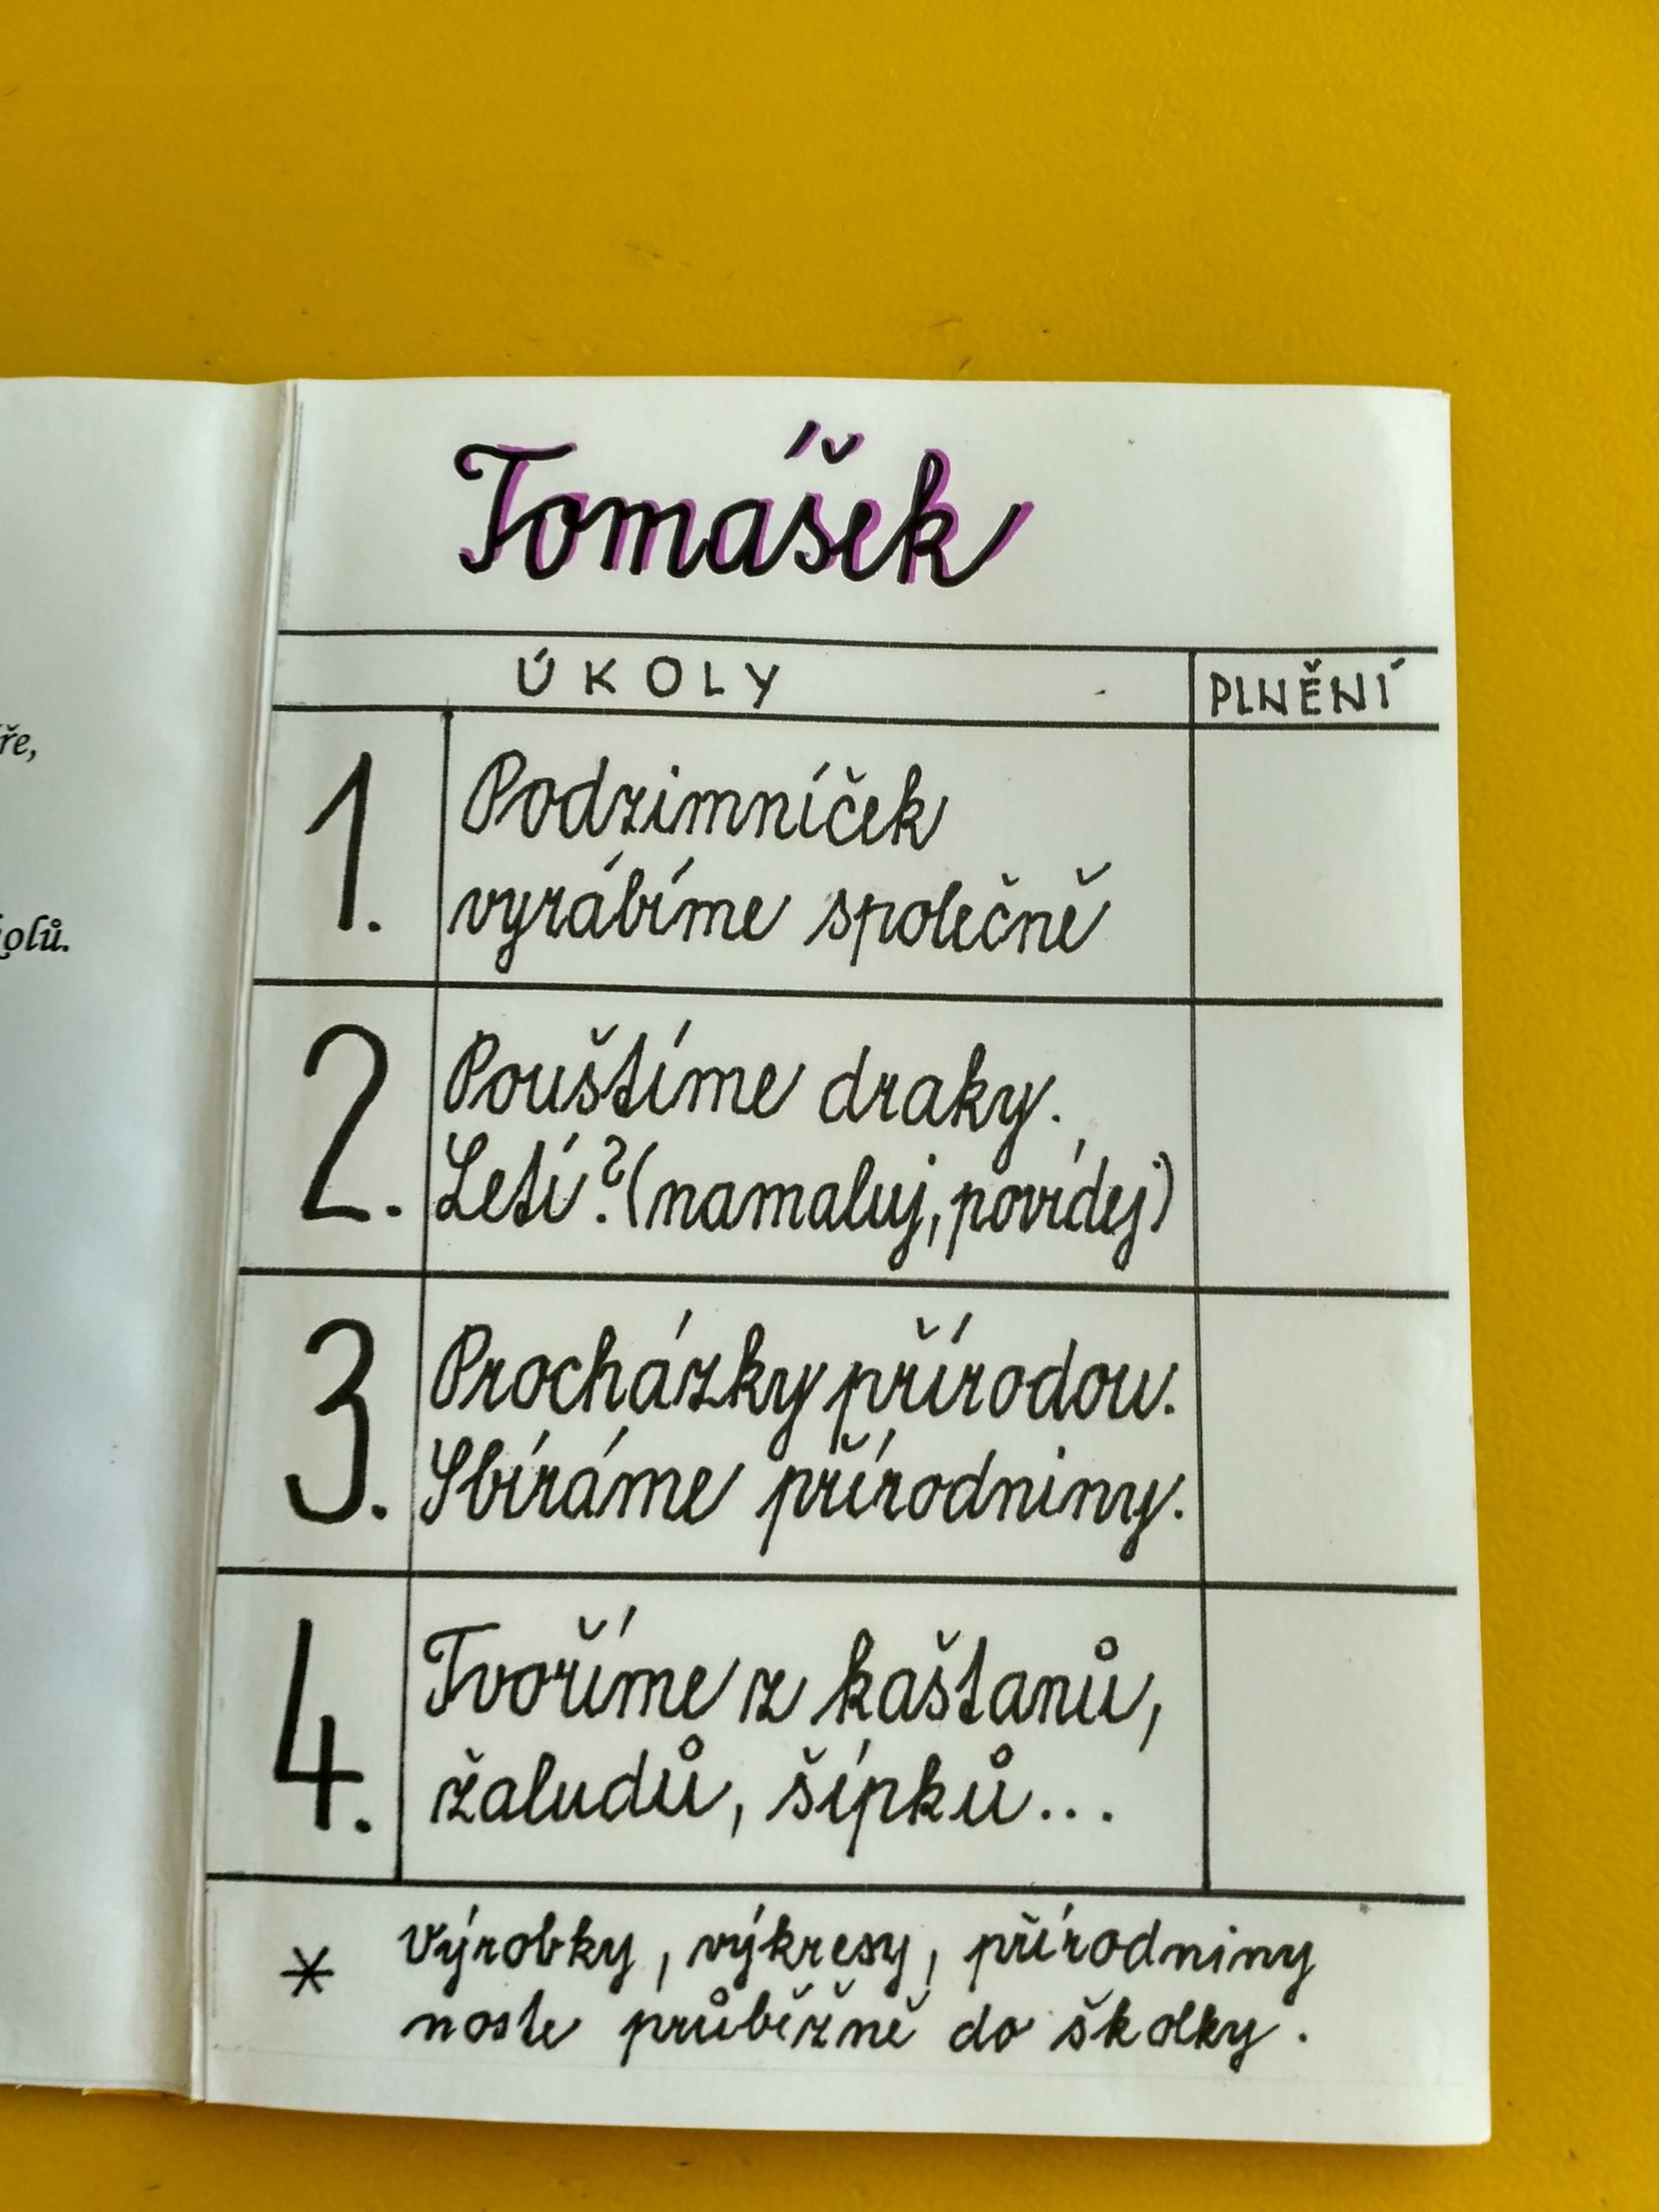 ře,
olů.
Tomášek
ÚKOLY PLNĚNÍ
1. Podzimníček
vyrábíme společně
2. Pouštíme draky.
Letí? (namaluj, povídej)
3. Procházky přírodou.
Sbíráme přírodniny.
4. Tvoříme z kaštanů,
žaludů, šípků...
* Výrobky, výkresy, přírodniny
noste průběžně do školky.